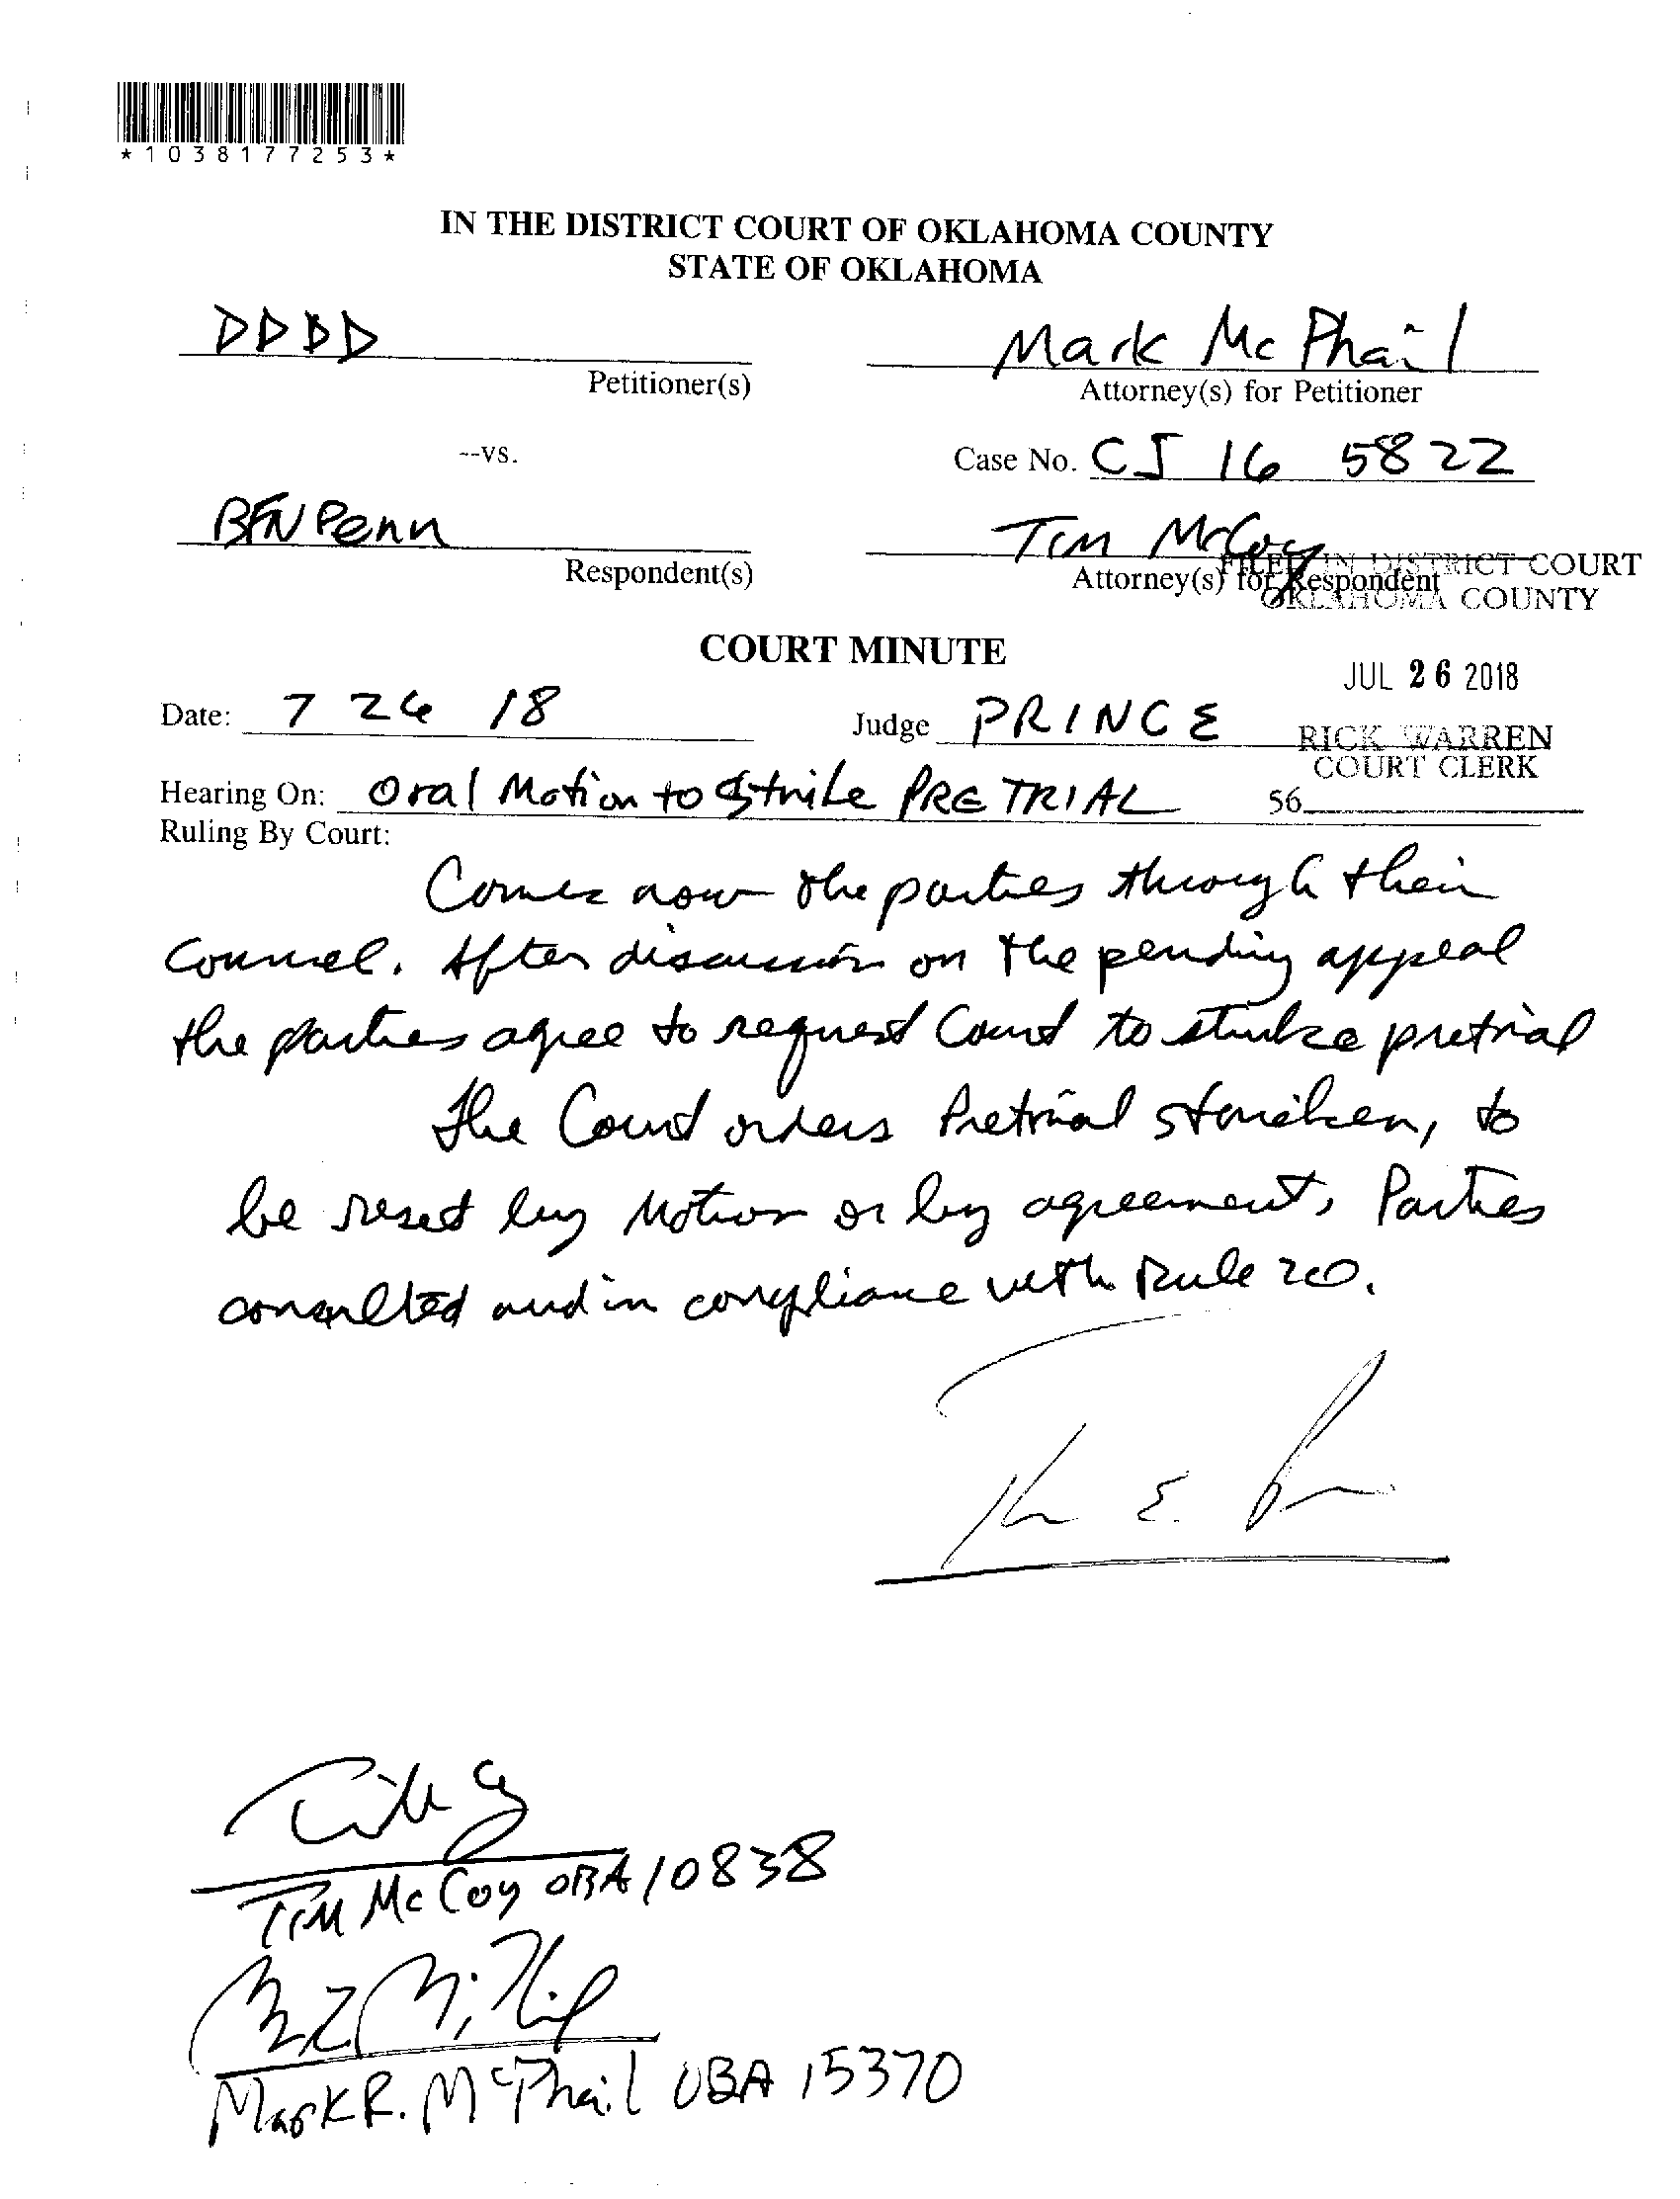 *1038177253*
IN THE DISTRICT COURT OF OKLAHOMA COUNTY
STATE OF OKLAHOMA
DDBD
Mark McPhail
Petitioner(s)
Attorney(s) for Petitioner
--vs.
Case No. CJ 16 5822
BFN Penn
Tim McCoy
Respondent(s)
Attorney(s) for Respondent
FILED IN DISTRICT COURT
OKLAHOMA COUNTY
COURT MINUTE
JUL 26 2018
Date: 7 26 18
Judge PRINCE
RICK WARREN
COURT CLERK
Hearing On: Oral Motion to Strike PRE TRIAL
56
Ruling By Court:
Comes now the parties through their
Counsel. After discussion on the pending appeal
the parties agree to request Court to strike pretrial
The Court orders Pretrial stricken, to
be reset by Motion or by agreement. Parties
consulted and in compliance with Rule 20.
Tim McCoy OBA 10838
Mark R. McPhail OBA 15370